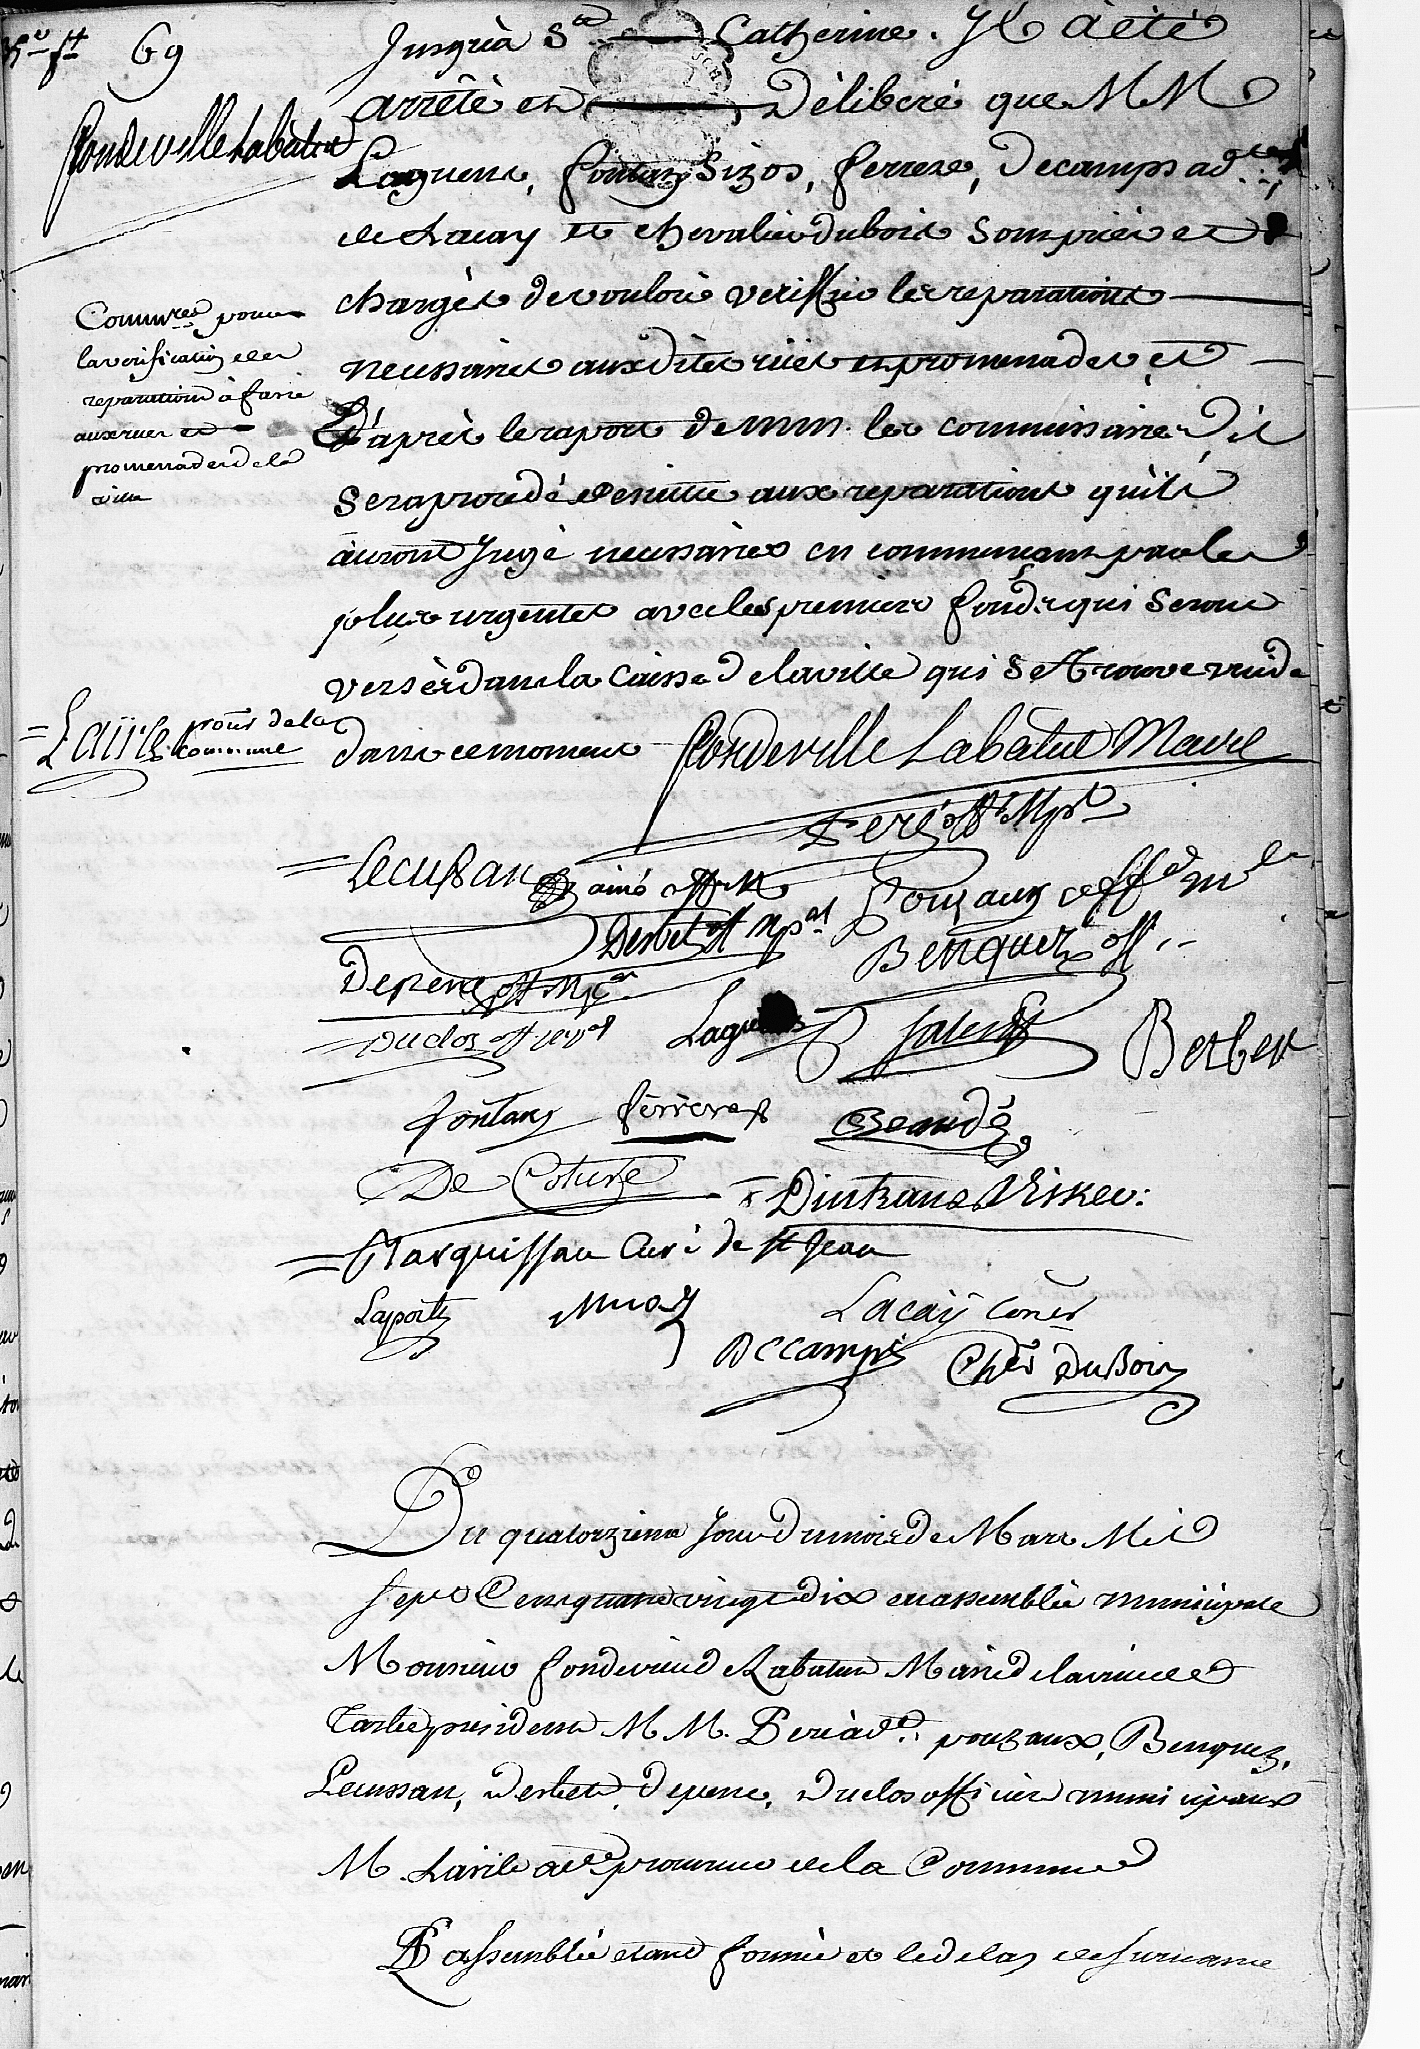 69
Fondeville Labatut
Jusqu'à Ste Catherine. Il a été
arrêté et délibéré que MM
Laguens, fontan Sizos, ferrere, Decamps ad
de Lacay et chevalier dubois sont priés et
chargés de vouloir veriffier les reparations
necessaires aux dites rües et promenades, et
D'après le raport de mm. les commissaires il
sera procédé de suitte aux reparations qu'ils
auront Jugé necessaires en commençant par les
plus urgentes avec les premiers fonds qui seront
versés dans la Caisse de la ville qui se trouve vuide
dans ce moment
Commres pour
la verification des
reparations à faire
aux rues et
promenades de la
ville
Lairle procr de la
Commune
Fondeville Labatut Maire
Peré off. Mpl
Lecussan ainé off. M
Pouzaux off. ml
Derbet off mpal
Benquez off
Depene off Mpal
Duclos off mpal
Laguens
Berbet
fontan ferrere
Beaudé
De Coture
Dintrans
Marquissau Curé de st Jean
Laporte
Lacay
Decamps Cher DuBois
Du quatorzieme Jour du mois de Mars Mil
sept Cens quatre vingt dix en assemblée municipale
Monsieur fondeville de Labatut Maire de la ville de
Tarbe president M M. Peré ad. pouzaux, Benquez,
Lecussan, derbet, depene, Duclos officiers municipaux
M. Lairle adt procureur de la Commune
L'assemblée etant formée et le delay de surseance